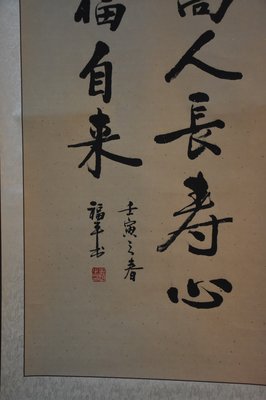 人長寿心
福自来
壬寅之春
福平书